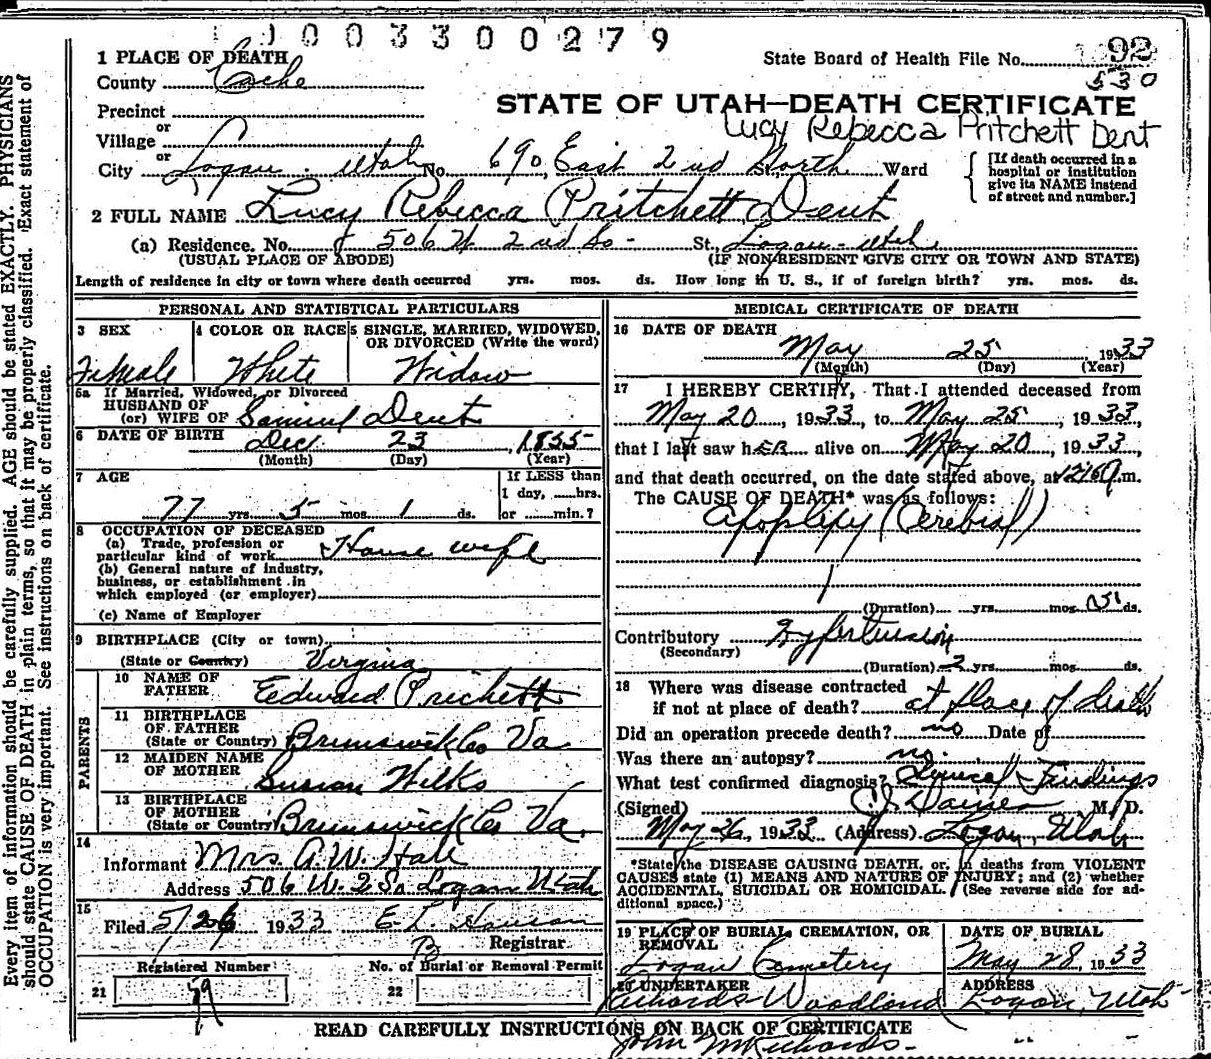 1003300279
1 PLACE OF DEATH
State Board of Health File No. 92
County Cache
530
STATE OF UTAH—DEATH CERTIFICATE
Precinct
Lucy Rebecca Pritchett Dent
or
Village
or
City Logan Utah No. 690 East 2nd North St. Ward
[If death occurred in a
hospital or institution
give its NAME instead
of street and number.]
2 FULL NAME Lucy Rebecca Pritchett Dent
(a) Residence. No. 506 W 2nd So - St. Logan - Utah
(USUAL PLACE OF ABODE) (IF NON RESIDENT GIVE CITY OR TOWN AND STATE)
Length of residence in city or town where death occurred yrs. mos. ds. How long in U. S., if of foreign birth? yrs. mos. ds.
PERSONAL AND STATISTICAL PARTICULARS
3 SEX
Female
4 COLOR OR RACE
White
5 SINGLE, MARRIED, WIDOWED,
OR DIVORCED (Write the word)
Widow
5a If Married, Widowed, or Divorced
HUSBAND OF
(or) WIFE OF Samuel Dent
6 DATE OF BIRTH Dec. 23, 1855
(Month) (Day) (Year)
7 AGE
77 yrs. 5 mos. 1 ds.
If LESS than
1 day, hrs.
or min.?
8 OCCUPATION OF DECEASED
(a) Trade, profession or
particular kind of work House wife
(b) General nature of industry,
business, or establishment in
which employed (or employer)
(c) Name of Employer
9 BIRTHPLACE (City or town)
(State or Country) Virginia
PARENTS
10 NAME OF
FATHER Eedward Prichett
11 BIRTHPLACE
OF FATHER
(State or Country) Brunswick Co Va.
12 MAIDEN NAME
OF MOTHER Susian Wilks
13 BIRTHPLACE
OF MOTHER
(State or Country) Brunswick Co Va.
14
Informant Mrs A.W. Hall
Address 506 W. 2 So Logan Utah
15
Filed 5/26 1933 E L Hanson
Registrar.
Registered Number
21 79
No. of Burial or Removal Permit
22
MEDICAL CERTIFICATE OF DEATH
16 DATE OF DEATH
May 25 1933
(Month) (Day) (Year)
17 I HEREBY CERTIFY, That I attended deceased from
May 20, 1933, to May 25, 1933,
that I last saw hER alive on May 20, 1933,
and that death occurred, on the date stated above, at m.
The CAUSE OF DEATH* was as follows:
Apoplexy (Cerebral)
(Duration) yrs. mos. 5 ds.
Contributory Hypertension
(Secondary)
(Duration) 2 yrs. mos. ds.
18 Where was disease contracted
if not at place of death? at place of death
Did an operation precede death? no Date of
Was there an autopsy? no.
What test confirmed diagnosis? Clinical Findings
(Signed) M. D.
May 26, 1933 (Address) Logan, Utah
*State the DISEASE CAUSING DEATH, or, in deaths from VIOLENT
CAUSES state (1) MEANS AND NATURE OF INJURY; and (2) whether
ACCIDENTAL, SUICIDAL OR HOMICIDAL. (See reverse side for ad-
ditional space.)
19 PLACE OF BURIAL, CREMATION, OR
REMOVAL
Logan Cemetery
DATE OF BURIAL
May 28, 1933
20 UNDERTAKER
Richards Woodland
ADDRESS
Logan, Utah
READ CAREFULLY INSTRUCTIONS ON BACK OF CERTIFICATE
John M Richards
Every item of information should be carefully supplied. AGE should be stated EXACTLY. PHYSICIANS
should state CAUSE OF DEATH in plain terms, so that it may be properly classified. Exact statement of
OCCUPATION is very important. See instructions on back of certificate.